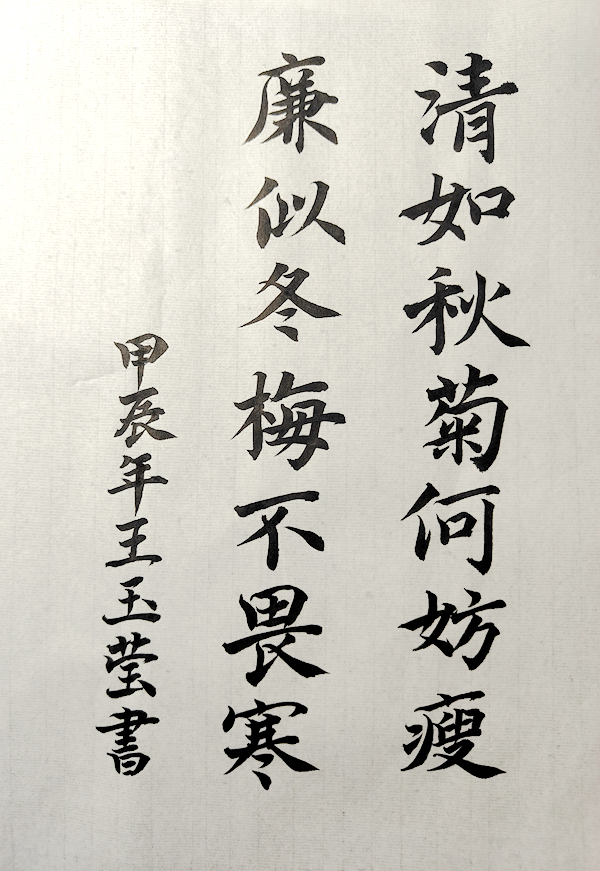 清如秋菊何妨瘦
廉似冬梅不畏寒
甲辰年王玉莹書